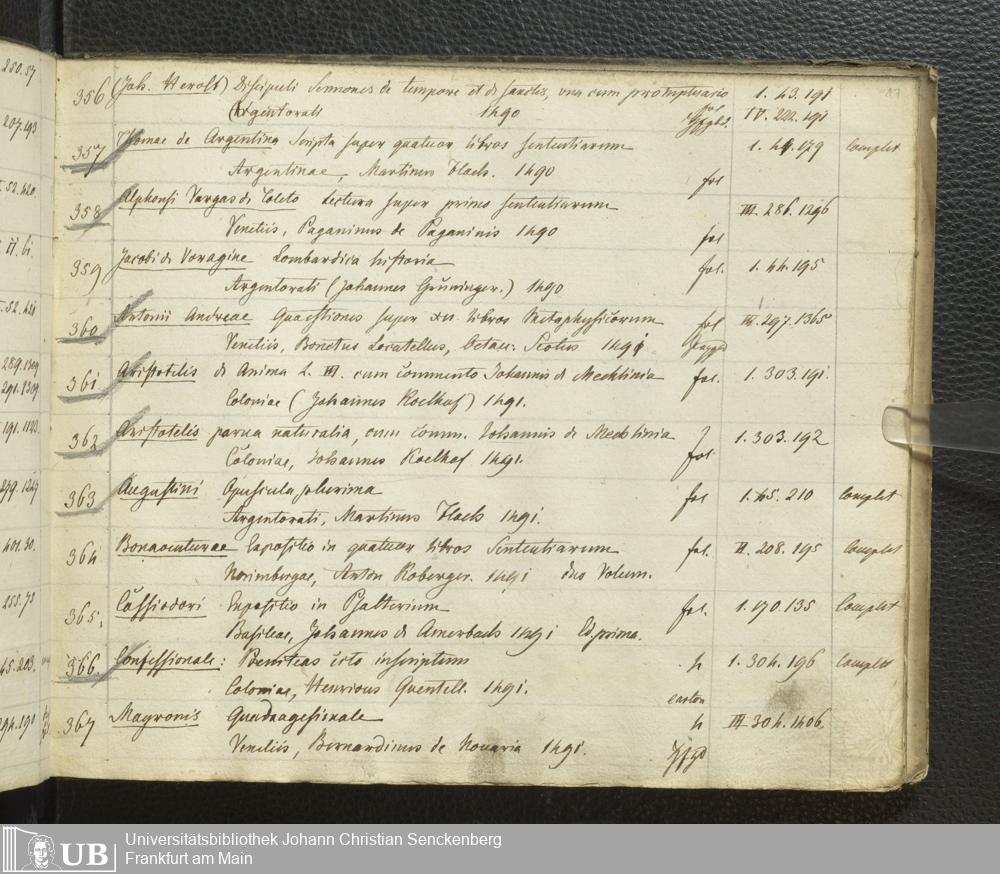 250.57
207.193
52.420.
II. 61.
52.421
289.1309
291.1309
191.
401.30.
255.75
45.203.
356 (Joh. Herolt) Discipuli Sermones de tempore et de sanctis, una cum promptuario 1. 43. 191
Argentorati 1490 fol IV. 222. 191
357 Thomae de Argentina Scripta super quatuor libros sententiarum 1. 44. 179 Complet
Argentinae, Martinus Flach. 1490 fol
358 Alphonsi Vargas de Toleto Lectura super primo sententiarum III. 286. 1296
Venetiis, Paganinus de Paganinis 1490 fol
359 Jacobi de Voragine Lombardica historia fol. 1. 44. 195
Argentorati (Johannes Grüninger.) 1490
360 Antonii Andreae Quaestiones super XII. libros Metaphysicorum fol III. 297. 1365
Venetiis, Bonetus Locatellus, Octav: Scotus 1491
361 Aristotelis de Anima L. III. cum Commento Johannis de Mechlinia fol. 1. 303. 191.
Coloniae (Johannes Koelhof) 1491.
362 Aristotelis parva naturalia, cum Comm. Johannis de Mechlinia 1. 303. 192
Coloniae, Johannes Koelhof 1491. fol.
363 Augustini Opuscula plurima fol 1. 45. 210 Complet
Argentorati, Martinus Flach 1491.
364 Bonaventurae Expositio in quatuor libros Sententiarum fol. II. 208. 195 Complet
Norimbergae, Anton Koberger. 1491 duo Volum.
365. Cassiodori Expositio in Psalterium fol. 1. 170. 135 Complet
Basileae, Johannes de Amerbach 1491 Ed. prima.
366. Confessionale: Poeniteas cito inscriptum 4 1. 304. 196 Complet
Coloniae, Henricus Quentell. 1491. carton
367 Mayronis Quadragesimale 4 III. 304. 1406.
Venetiis, Bernardinus de Novaria 1491.
UB Universitätsbibliothek Johann Christian Senckenberg
Frankfurt am Main